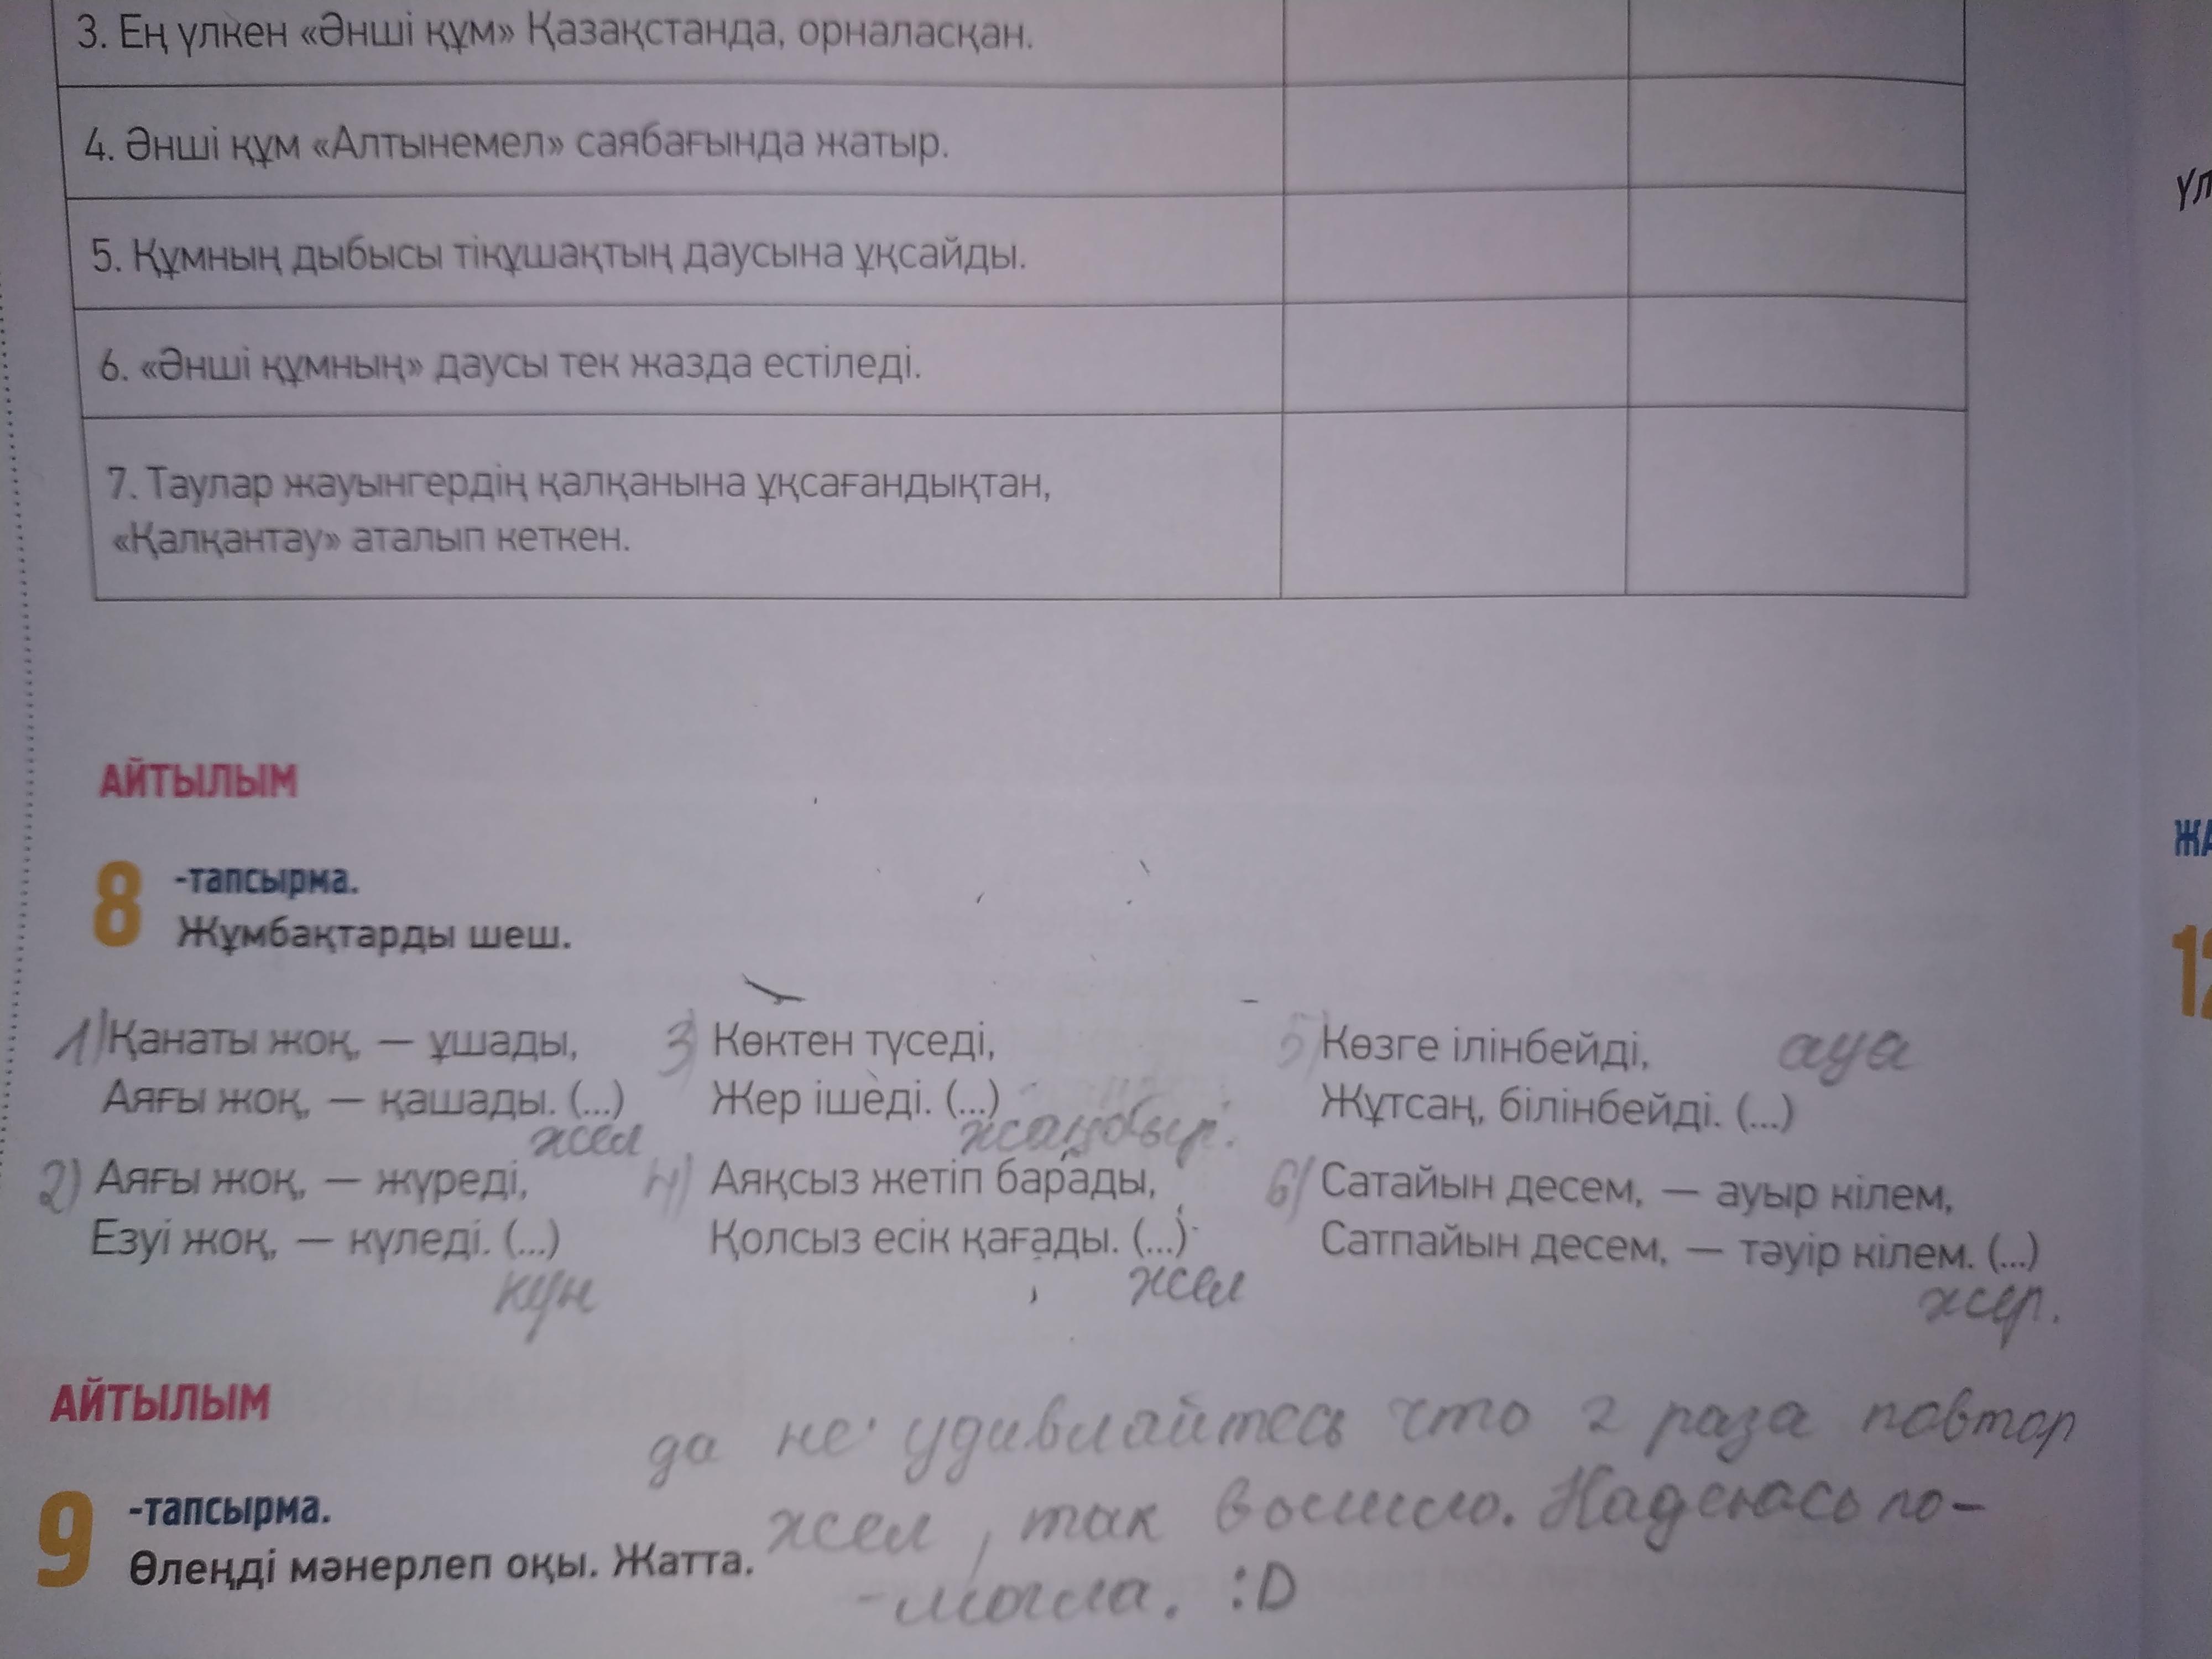 3. Ең үлкен «Әнші құм» Қазақстанда, орналасқан.
4. Әнші құм «Алтынемел» саябағында жатыр.
5. Құмның дыбысы тікұшақтың даусына ұқсайды.
6. «Әнші құмның» даусы тек жазда естіледі.
7. Таулар жауынгердің қалқанына ұқсағандықтан,
«Қалқантау» аталып кеткен.
АЙТЫЛЫМ
8 -тапсырма.
Жұмбақтарды шеш.
1) Қанаты жоқ, — ұшады,
Аяғы жоқ, — қашады. (...)
жел
2) Аяғы жоқ, — жүреді,
Езуі жоқ, — күледі. (...)
күн
3) Көктен түседі,
Жер ішеді. (...)
жаңбыр.
4) Аяқсыз жетіп барады,
Қолсыз есік қағады. (...)
жел
5) Көзге ілінбейді,
ауа
Жұтсаң, білінбейді. (...)
6) Сатайын десем, — ауыр кілем,
Сатпайын десем, — тәуір кілем. (...)
жер.
АЙТЫЛЫМ
9 -тапсырма.
Өлеңді мәнерлеп оқы. Жатта.
да не удивлайтесь что 2 раза повтор
жел, так вышло. Надеюсь по-
-могла. :D
үл
ЖА
12